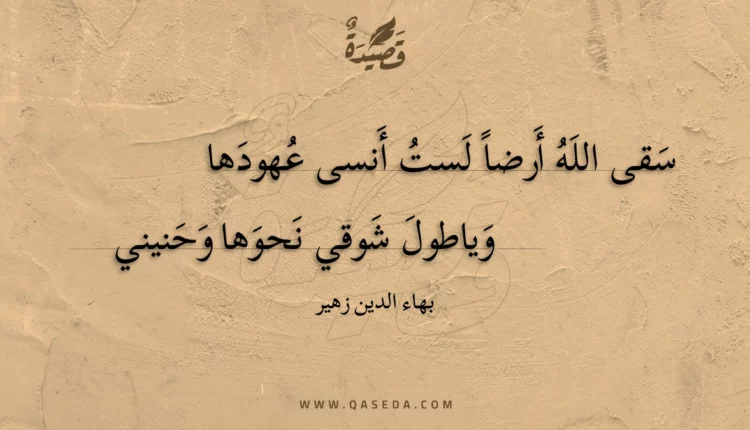 قَصِيدَةٌ
سَقى اللَهُ أَرضاً لَستُ أَنسى عُهودَها
وَياطولَ شَوقي نَحوَها وَحَنيني
بهاء الدين زهير
WWW.QASEDA.COM